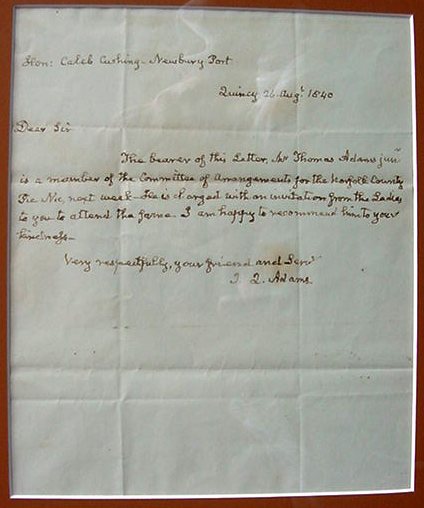 Hon: Caleb Cushing - Newbury Port
Quincy 26. Augt. 1840
Dear Sir
The bearer of this Letter, Mr Thomas Adams junr
is a member of the Committee of Arrangements for the Norfolk County
Pic Nic, next week - He is charged with an invitation from the Ladies
to you to attend the same. I am happy to recommend him to your
kindness -
Very respectfully, your friend and Servt
J. Q. Adams.